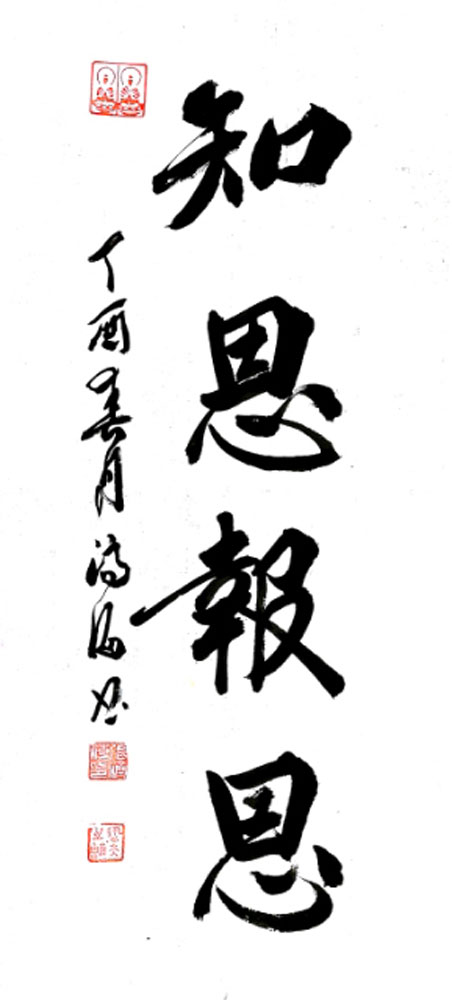 知恩報恩
丁酉春月鴻海書